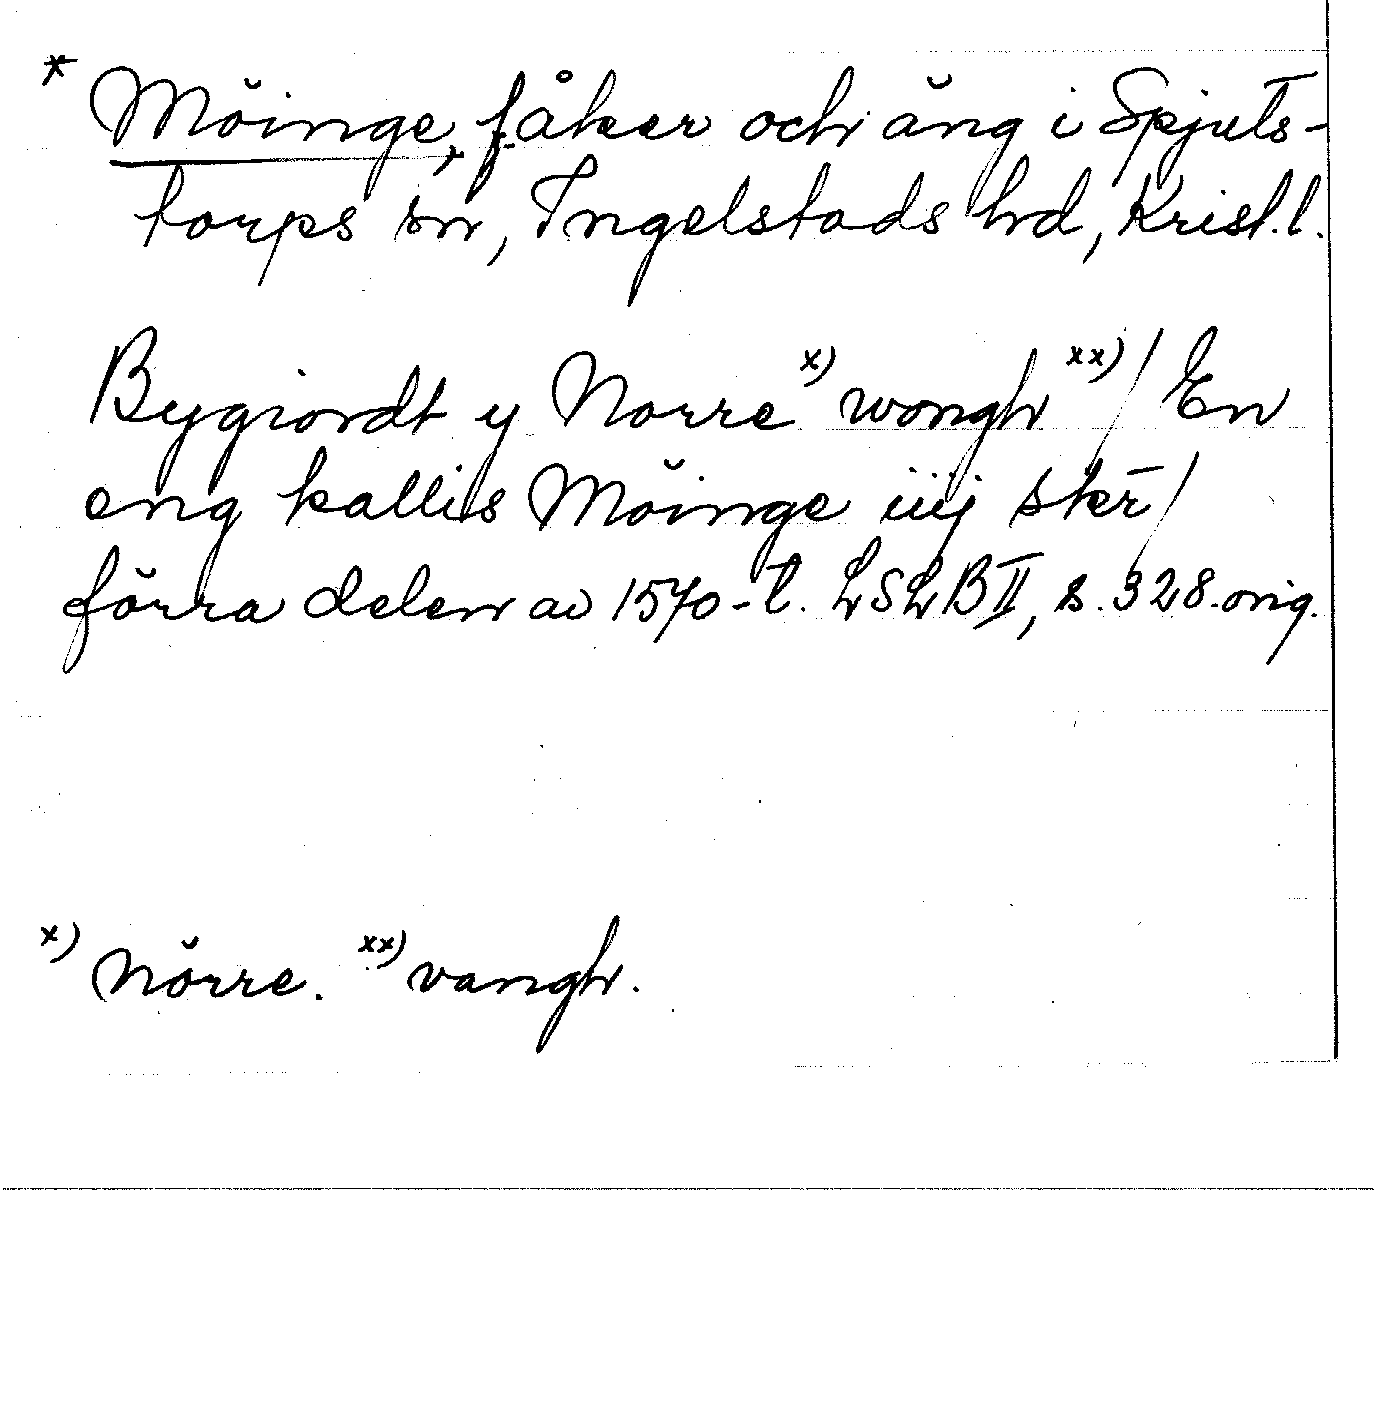 * Möinge, f. åker och äng i Spjuts-
torps sn, Ingelstads hd, Krist. l.
Bygiordt y Norre x) wongh xx) / En
eng kallis Möinge iiij skr̄ /
förra delen av 1570-t. LSLB II, s. 328. orig.
x) Nörre. xx) vangh.